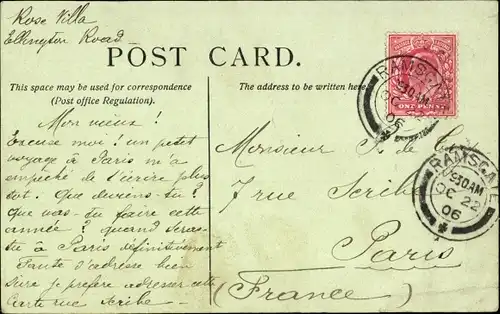 Rose Villa
Ellington Road
POST CARD.
This space may be used for correspondence
(Post office Regulation).
The address to be written here.
Mon vieux!
Excuse moi! un petit
voyage à Paris m'a
empêché de t'écrire plus
tôt. Que deviens-tu?
Que vas-tu faire cette
année? Quand seras-
tu à Paris définitivement
Faute d'adresse bien
sûre je préfère adresser cette
Carte rue Scribe -
Monsieur F. de
7 rue Scribe
Paris
(France)
ONE PENNY
RAMSGATE
930AM
OC
06
RAMSGATE
930AM
OC 22
06